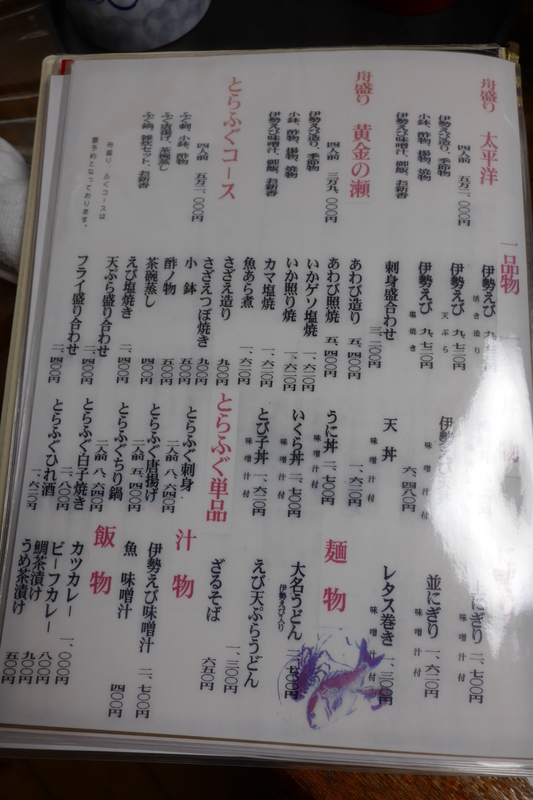 舟盛り 太平洋
四人前 五万二、〇〇〇円
伊勢えび造り、季節物
小鉢、酢物、揚物、焼物
伊勢えび味噌汁、御飯、お新香
舟盛り 黄金の瀬
四人前 三万九、〇〇〇円
伊勢えび造り、季節物
小鉢、酢物、揚物、焼物
伊勢えび味噌汁、御飯、お新香
とらふぐコース
四人前 五万二、〇〇〇円
ふぐ刺、小鉢、酢物
ふぐ唐揚げ、茶碗蒸し
ふぐ鍋、雑炊セット、お新香
舟盛り、ふぐコースは
要予約となっております。
一品物
伊勢えび 焼き 造り
伊勢えび 天ぷら 九、七二〇円
伊勢えび 塩焼き 九、七二〇円
刺身盛合わせ 三、二〇〇円
あわび造り 五、四〇〇円
あわび照焼 五、四〇〇円
いかゲソ塩焼 一、六二〇円
いか照り焼 一、六二〇円
カマ塩焼 一、六二〇円
魚あら煮 一、六二〇円
さざえ造り 九〇〇円
さざえつぼ焼き 九〇〇円
小鉢 五〇〇円
酢ノ物 五〇〇円
茶碗蒸し 四〇〇円
えび塩焼き 二、四〇〇円
天ぷら盛り合わせ 二、四〇〇円
フライ盛り合わせ 二、四〇〇円
味噌汁付
天丼 味噌汁付 六、四八〇円
一、六二〇円
うに丼 味噌汁付 二、七〇〇円
いくら丼 味噌汁付 二、七〇〇円
とび子丼 味噌汁付 一、六二〇円
とらふぐ単品
とらふぐ刺身 二人前 八、六四〇円
とらふぐ唐揚げ 二人前 五、四〇〇円
とらふぐちり鍋 二人前 八、六四〇円
とらふぐ白子焼き 二、八〇〇円
とらふぐひれ酒 一、六二〇円
にぎり 味噌汁付 二、七〇〇円
並にぎり 味噌汁付 一、六二〇円
レタス巻き 味噌汁付 一、三〇〇円
麺物
大名うどん 伊勢えび入り
えび天ぷらうどん 一、三〇〇円
ざるそば 六五〇円
汁物
伊勢えび味噌汁 二、七〇〇円
魚 味噌汁 四〇〇円
飯物
カツカレー 一、〇〇〇円
ビーフカレー 八〇〇円
鯛茶漬け 九〇〇円
うめ茶漬け 五〇〇円